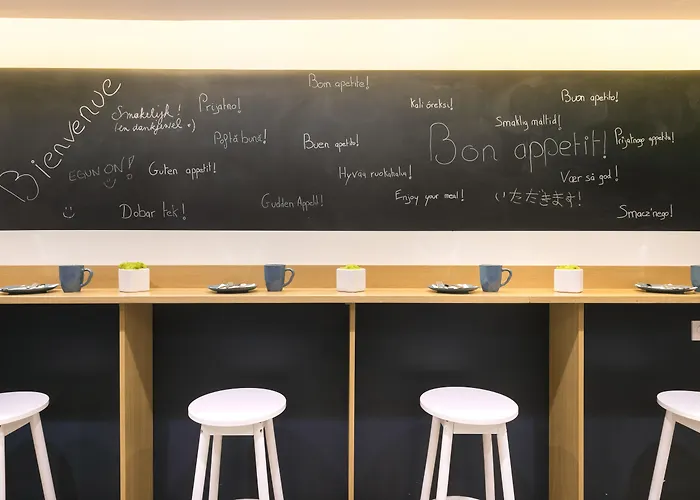 Bienvenue
Smakelijk!
(en dankjewel.)
Prijatno!
Bom apetite!
Kali óreksi!
Buon apetito!
EGUN ON!
Guten appetit!
Poftă bună!
Buen apetito!
Smaklig måltid!
Bon appetit!
Prijatnogo appetita!
Hyvää ruokahalua!
Vær så god!
Dobar tek!
Gudden Appetit!
Enjoy your meal!
いただきます!
Smacz'nego!